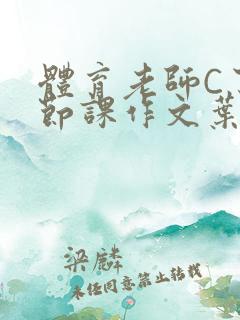 體育老師C了
節課作文葉
梁麟
未经同意禁止转载